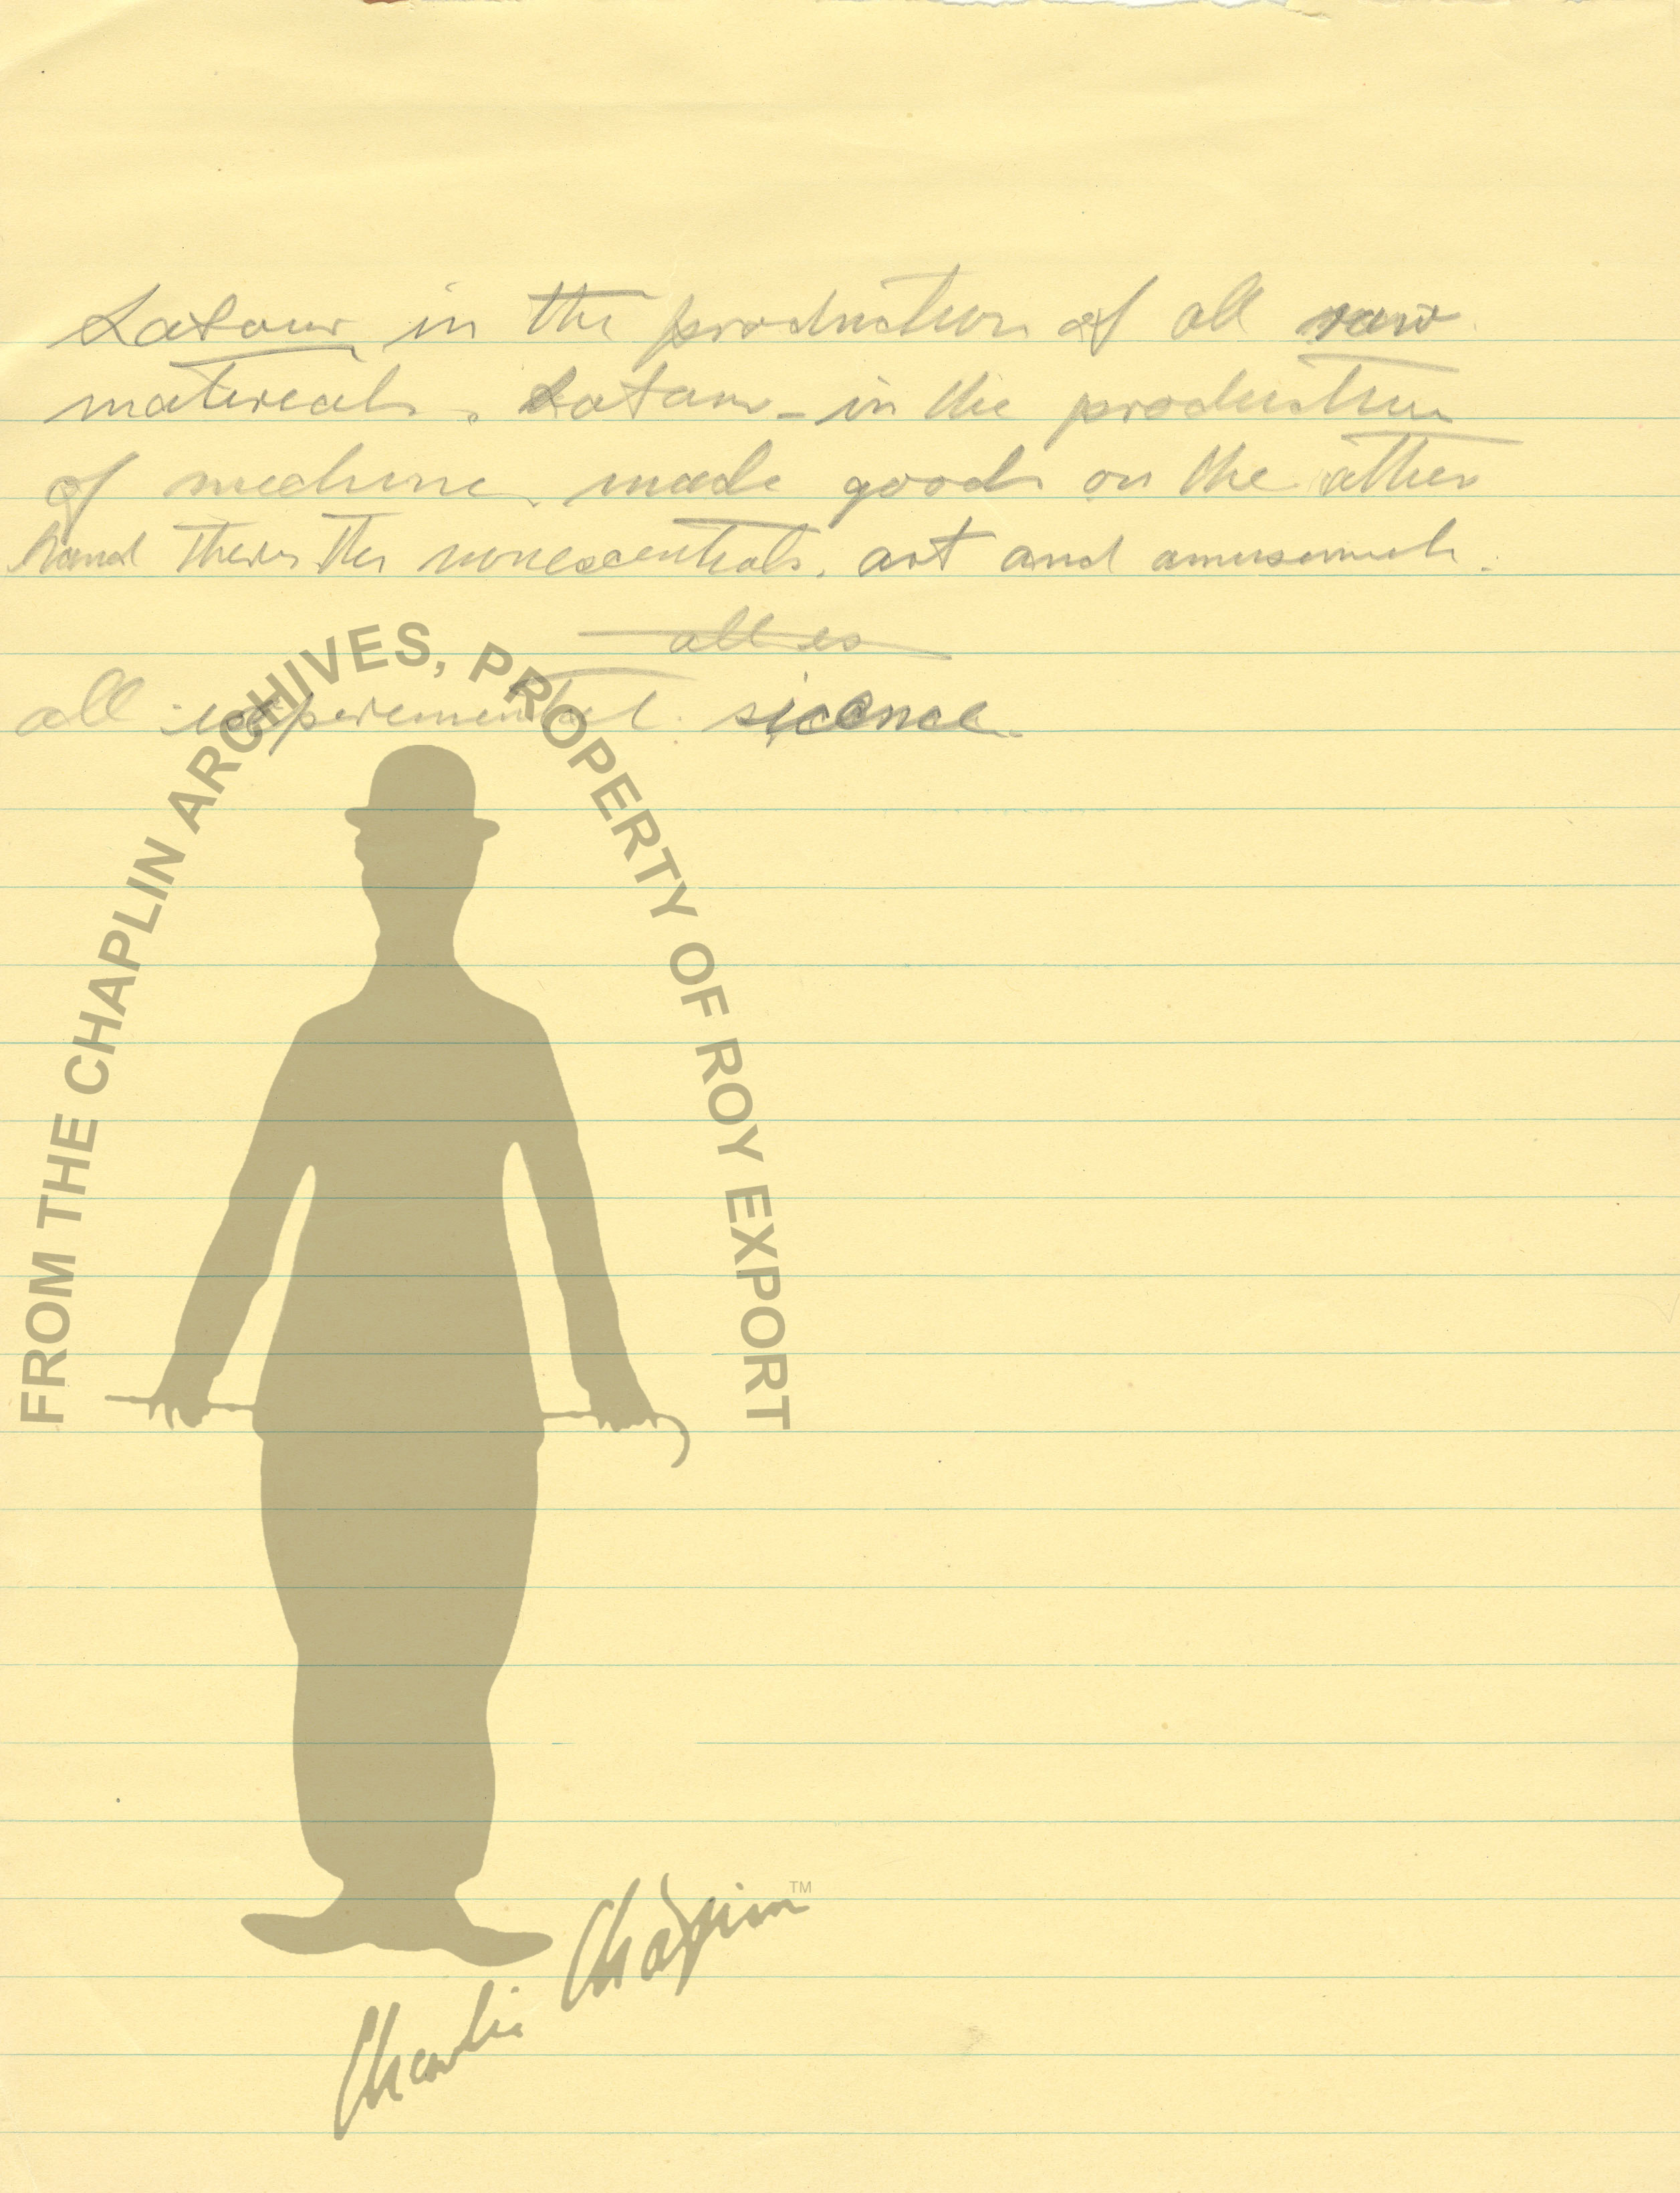 Labour in the production of all raw
matireals. Labour - in the production
of mechine made goods on the other
hand theirs the nonescentials. art and amusements.
all es
all experimental sicence.
FROM THE CHAPLIN ARCHIVES, PROPERTY OF ROY EXPORT
Charlie Chaplin TM